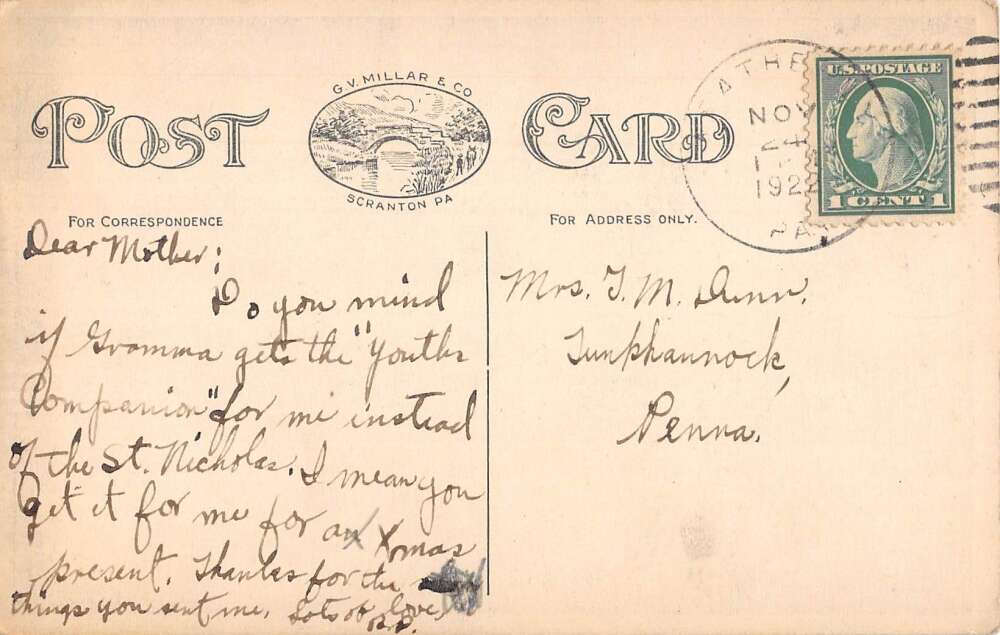 POST CARD
G.V. MILLAR & CO
SCRANTON PA
FOR CORRESPONDENCE
FOR ADDRESS ONLY.
ATHE
NOV
24
192
PA
U.S. POSTAGE
1 CENT 1
Dear Mother;
Do you mind
if Gramma gets the "Youths
Companion" for me instead
of the St. Nicholas. I mean you
get it for me for an Xmas
present. Thanks for the
things you sent me. Lots of love,
Mrs. T. M. Dunn.
Tunkhannock,
Penna.